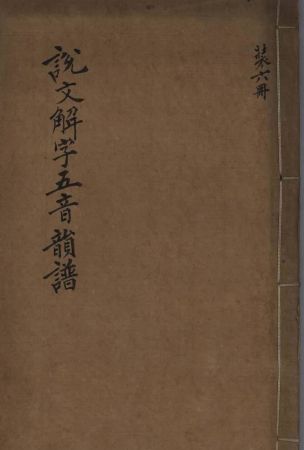 裝六冊
說文解字五音韻譜